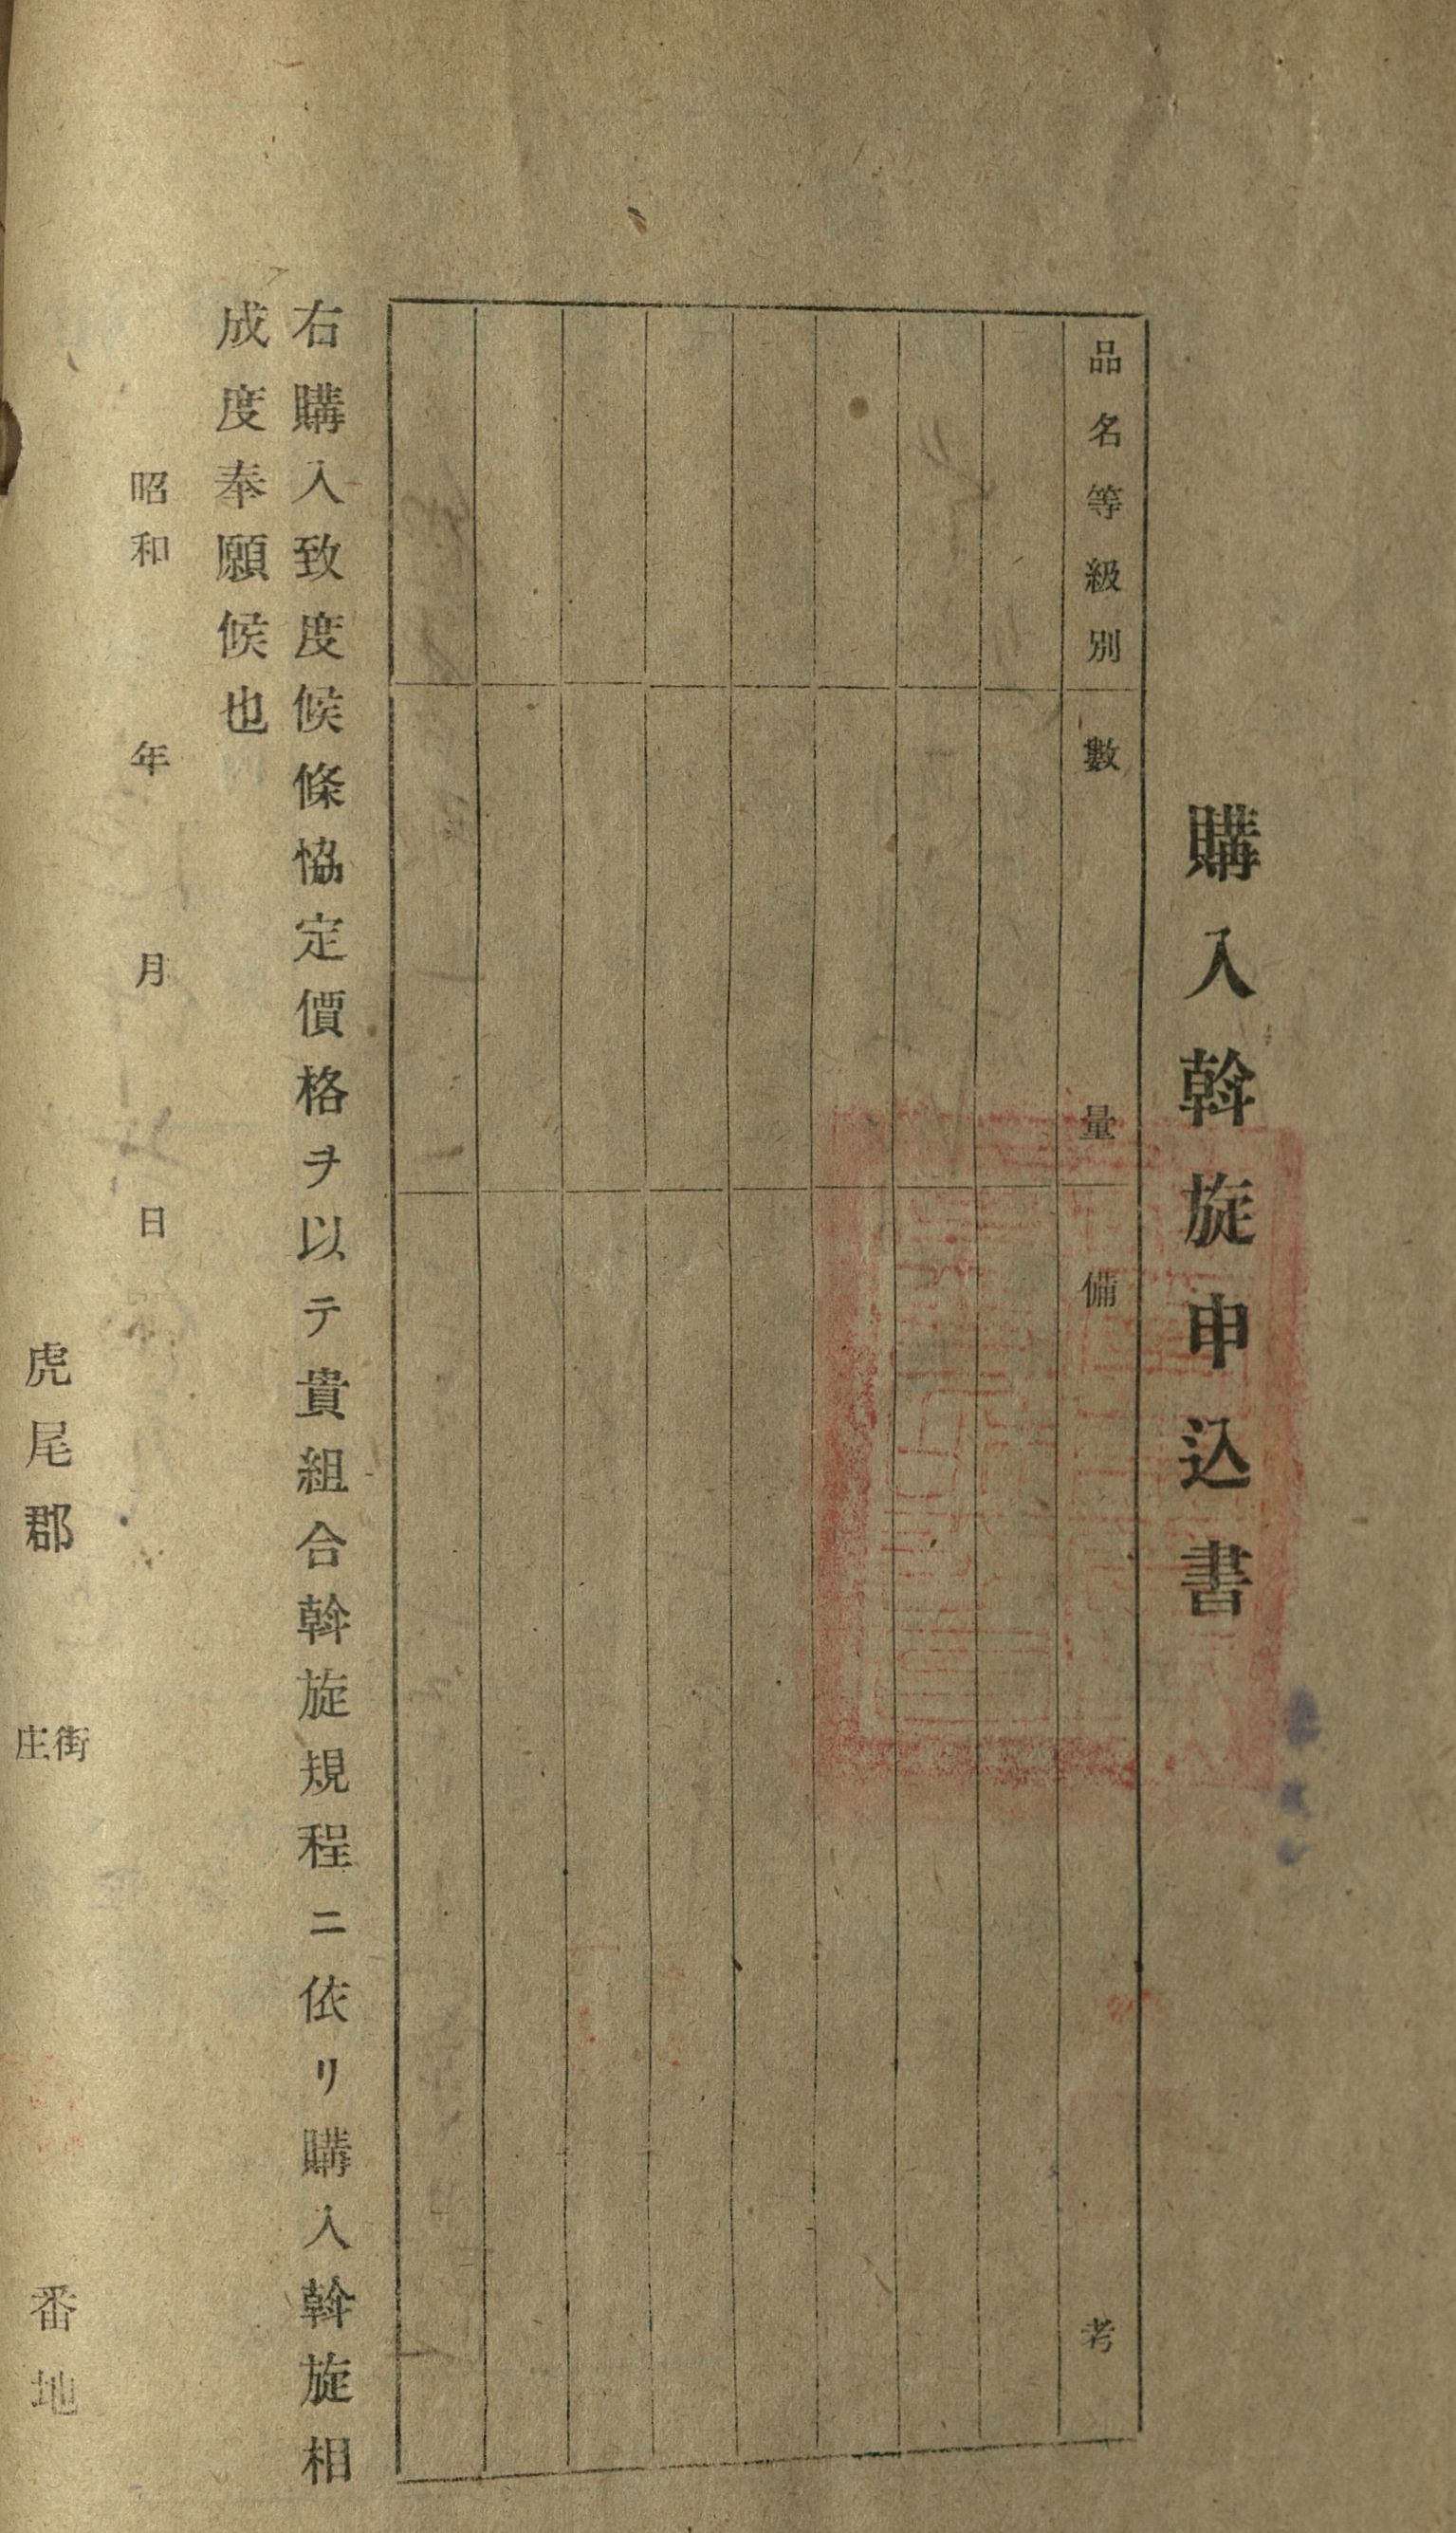 購入斡旋申込書
品名等級別
數量
備考
右購入致度候條協定價格ヲ以テ貴組合斡旋規程ニ依リ購入斡旋相
成度奉願候也
昭和 年 月 日
虎尾郡 街庄 番地